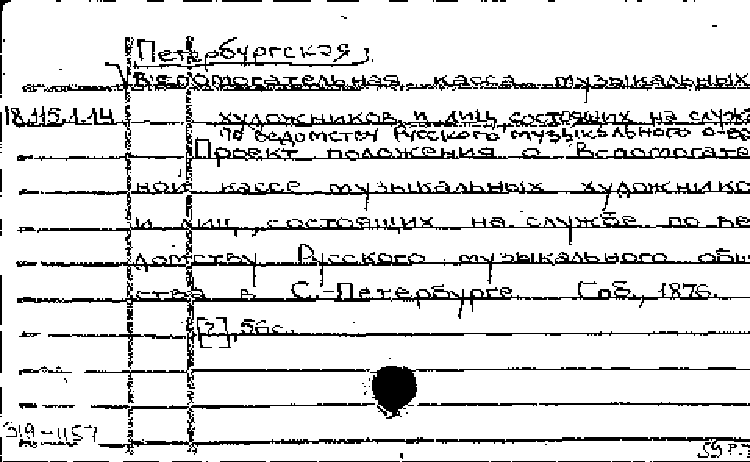 Петербургская
Вспомогательная касса музыкальных
18.115.1.14 художников и лиц, состоящих на служ
по ведомству Русского музыкального о-ва
Проект положения о Вспомогате
ной кассе музыкальных художнико
и лиц, состоящих на службе по ве
домству Русского музыкального общ
ства в С.-Петербурге. Спб., 1876.
[2], 56 с.
319-1157